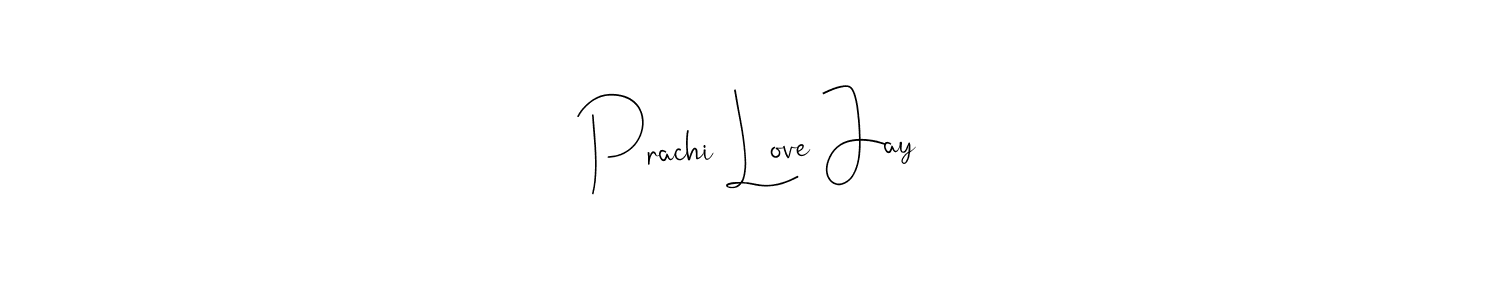 Prachi Love Jay